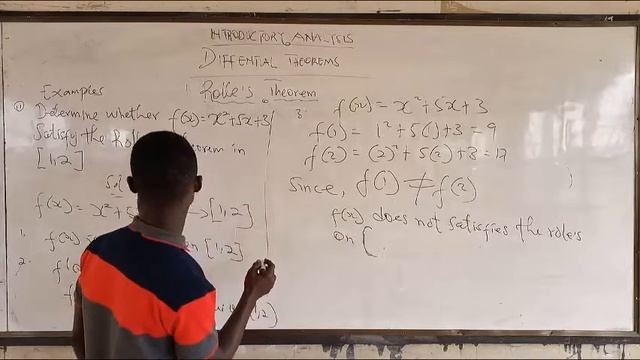 INTRODUCTORY ANALYSIS
DIFFENTIAL THEOREMS
1. Rolle's Theorem
Examples
Determine whether f(x)=x²+5x+3
Satisfy the Rolle's Theorem in
[1,2]
Sol
f(x)=x²+5 → [1,2]
1.
f(x) in [1,2]
2.
f'(
1,2)
3. f(x) = x²+5x+3
f(1) = 1²+5(1)+3 = 9
f(2) = (2)²+5(2)+3 = 17
Since, f(1) ≠ f(2)
f(x) does not satisfies the role's
on [